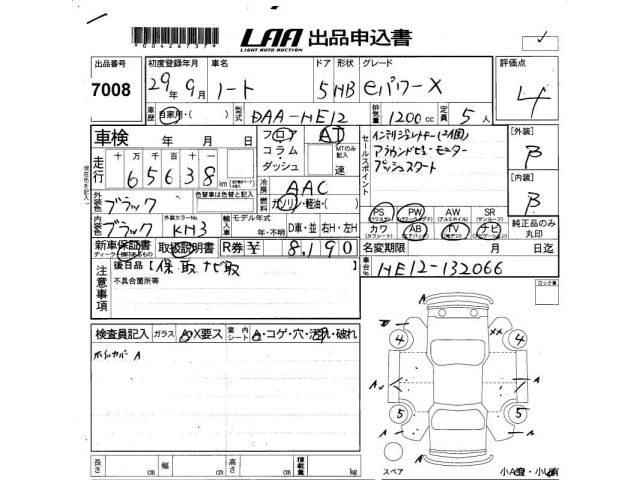 *00426737*
LAA 出品申込書
LIGHT AUTO AUCTION
出品番号 初度登録年月 車名 ドア 形状 グレード 評価点
7008 29年9月 ノート 5 HB eパワーX 4
車歴 自家用・( ) 型式 DAA-HE12 排気量 1200cc 定員 5人
車検 年 月 日 フロア AT セールスポイント インテリジェントキー(2個) [外装] B
コラム・ MTのみ記入 アラウンドビューモニター
走行 十万 万 千 百 十 一 ダッシュ 速 プッシュスタート
65638km 冷房 AAC [内装] B
外装色 ブラック 色替車は色替と記入 燃料 ガソリン・軽油・( )
PS PW AW SR 純正品のみ丸印
(パワステ) (パワーウィンドウ) (アルミホイール) (サンルーフ)
内装色 ブラック 外装カラーNo. KH3 輸入車 モデル年式 年・不明 D車・並 右H・左H カワ AB TV ナビ
(カワシート) (エアバッグ) (地デジ) (ナビゲーション)
新車保証書 取扱説明書 R券¥ 8,190 名変期限 月 日迄
注意事項 後日品【保・取 ナビ取 】 車台No. HE12-132066
不具合箇所等 ロック車
検査員記入 ガラス A・X要ス 室内シート A・コゲ・穴・汚れ・破れ
ホイルカバー A
A
4 XX 4
A A
5 5
A A
A
長さ cm 幅 cm 高さ cm 積載量 kg スペア